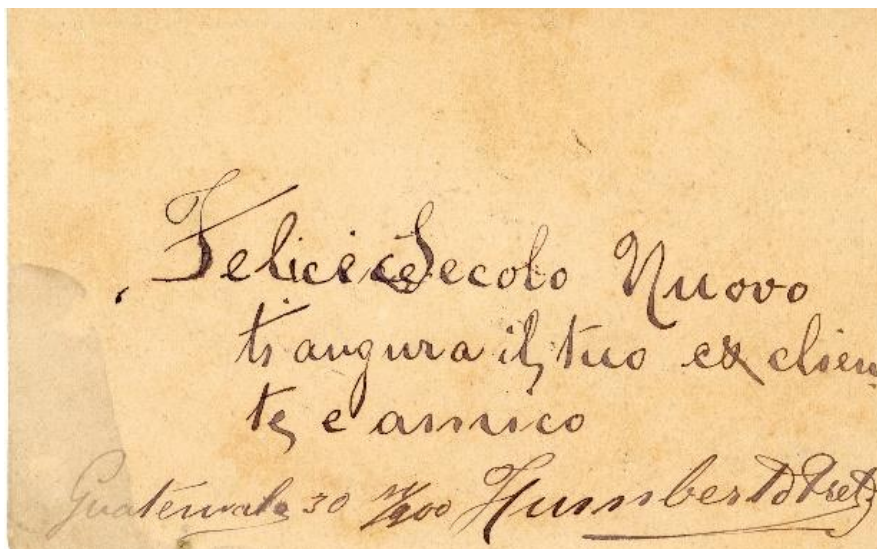 Felice Secolo Nuovo
ti augura il tuo ex clien
te e amico
Guatemala 30 900 Humberto